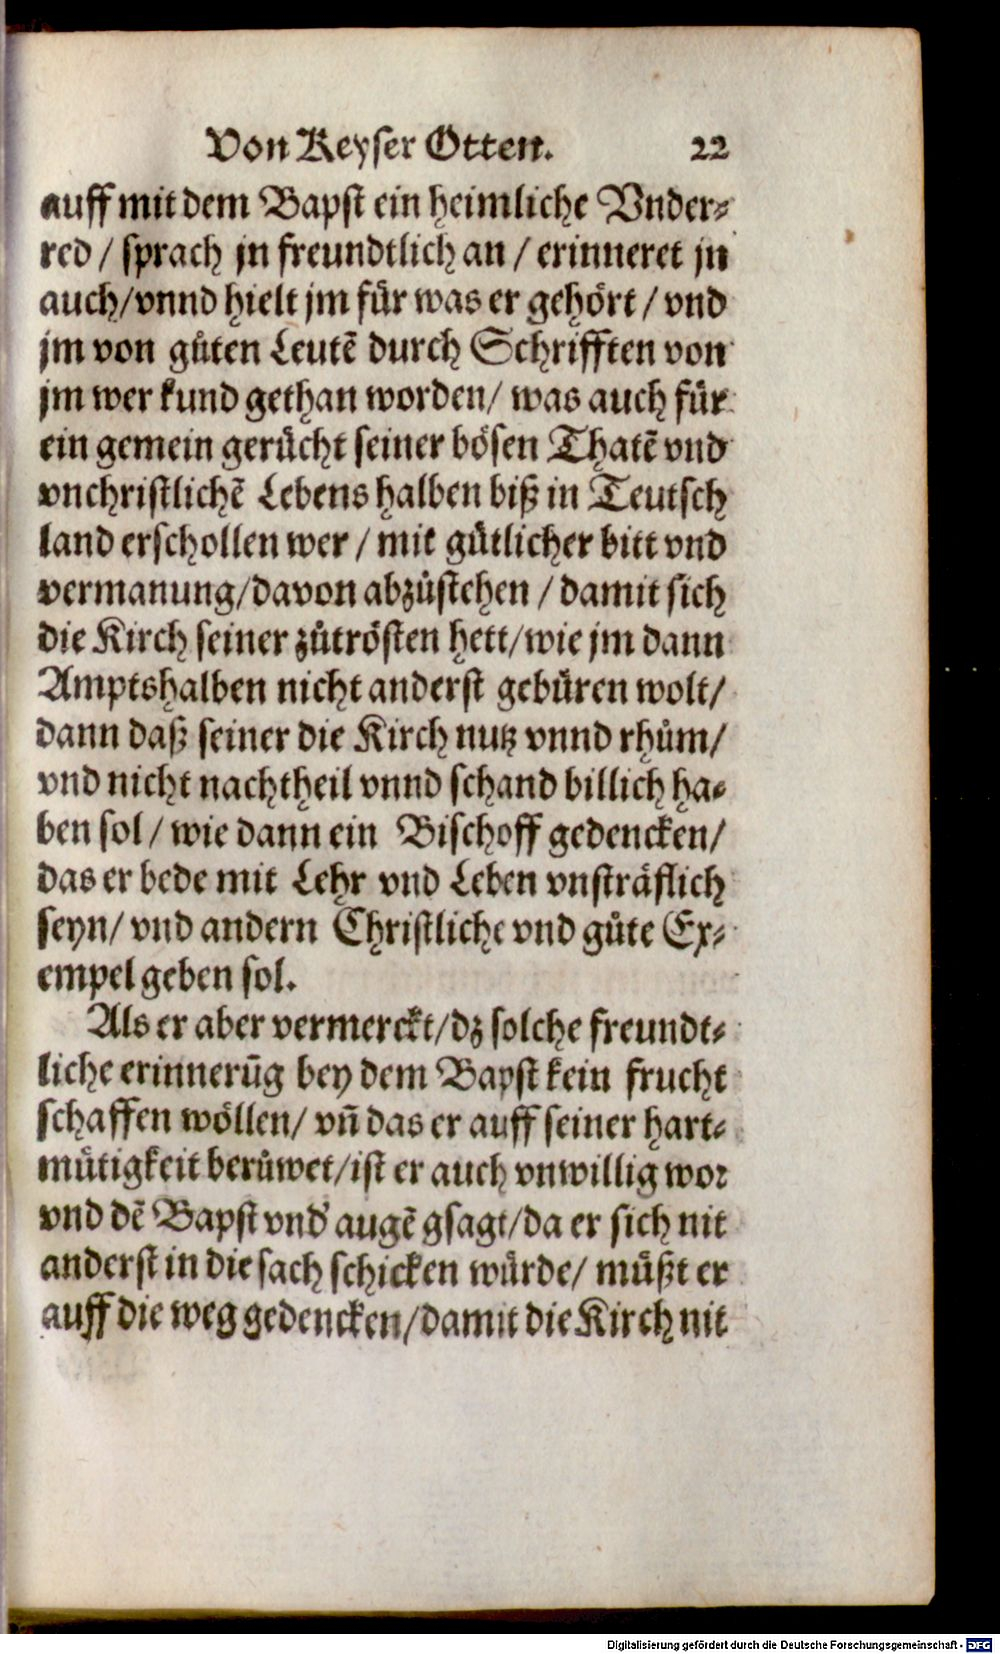 Von Keyser Otten. 22
auff mit dem Bapst ein heimliche Vnder⸗
red / sprach jn freundtlich an / erinneret jn
auch/vnnd hielt jm für was er gehört / vnd
jm von gůten Leutẽ durch Schrifften von
jm wer kund gethan worden/ was auch für
ein gemein gerücht seiner bösen Thatẽ vnd
vnchristlichẽ Lebens halben biß in Teutsch
land erschollen wer / mit gütlicher bitt vnd
vermanung/davon abzůstehen / damit sich
die Kirch seiner zůtrösten hett/wie jm dann
Amptshalben nicht anderst gebüren wolt/
dann daß seiner die Kirch nutz vnnd rhům/
vnd nicht nachtheil vnnd schand billich ha⸗
ben sol / wie dann ein Bischoff gedencken/
das er bede mit Lehr vnd Leben vnsträflich
seyn/ vnd andern Christliche vnd gůte Ex⸗
empel geben sol.
Als er aber vermerckt/dz solche freundt⸗
liche erinnerũg bey dem Bapst kein frucht
schaffen wöllen/ vñ das er auff seiner hart⸗
mütigkeit berůwet/ist er auch vnwillig wor
vnd dẽ Bapst vnd augẽ gsagt/da er sich nit
anderst in die sach schicken würde/ müßt er
auff die weg gedencken/damit die Kirch nit
Digitalisierung gefördert durch die Deutsche Forschungsgemeinschaft - DFG